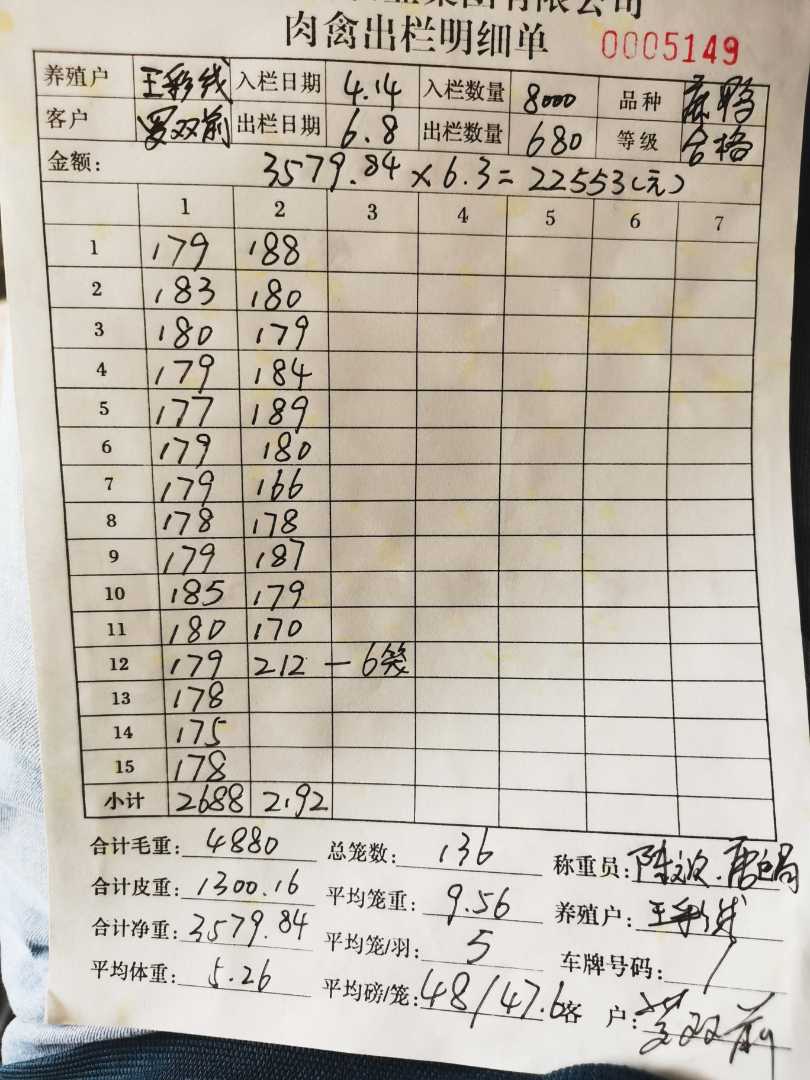 集团有限公司
肉禽出栏明细单 0005149
养殖户 王彩线 入栏日期 4.14 入栏数量 8000 品种 麻鸭
客户 罗双前 出栏日期 6.8 出栏数量 680 等级 合格
金额: 3579.84 × 6.3 = 22553(元)
1 2 3 4 5 6 7
1 179 188
2 183 180
3 180 179
4 179 184
5 177 189
6 179 180
7 179 166
8 178 178
9 179 187
10 185 179
11 180 170
12 179 212 — 6笼
13 178
14 175
15 178
小计 2688 2192
合计毛重: 4880 总笼数: 136 称重员:
合计皮重: 1300.16 平均笼重: 9.56 养殖户: 王彩线
合计净重: 3579.84 平均笼/羽: 5 车牌号码: /
平均体重: 5.26 平均磅/笼: 48/47.6 客 户: 罗双前